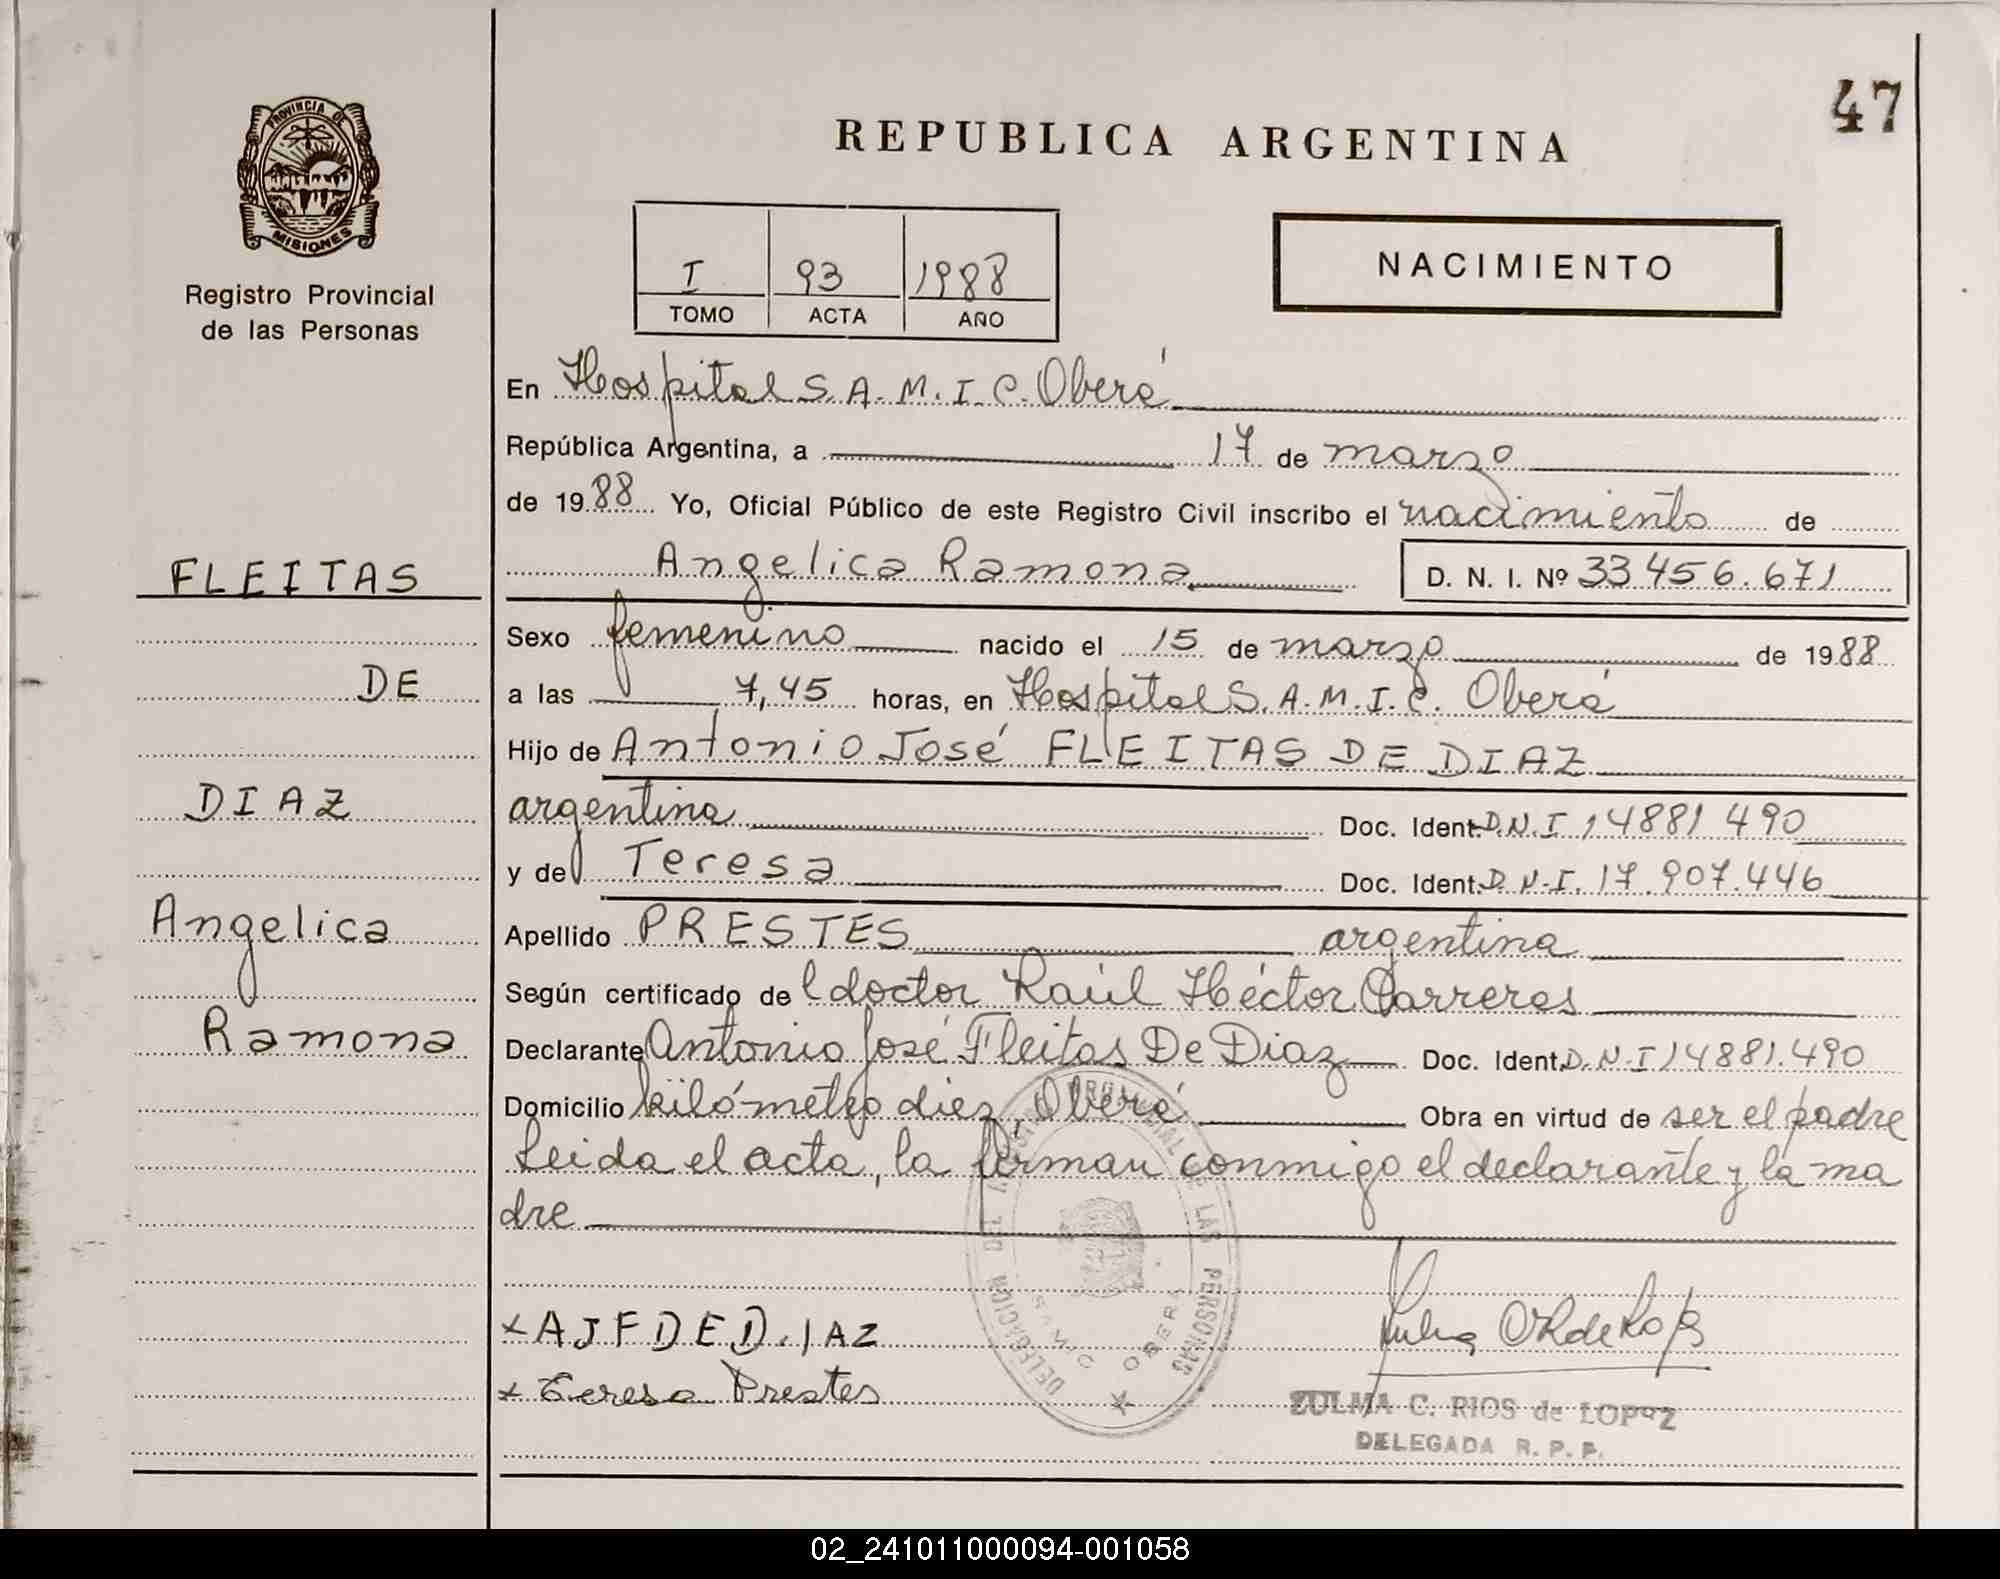 47
PROVINCIA DE
MISIONES
Registro Provincial
de las Personas
REPUBLICA ARGENTINA
I 93 1988
TOMO ACTA AÑO
NACIMIENTO
En Hospital S.A.M.I.C. Oberá
República Argentina, a 17 de marzo
de 1988 Yo, Oficial Público de este Registro Civil inscribo el nacimiento de
Angelica Ramona D. N. I. Nº 33 456.671
FLEITAS
DE
DIAZ
Angelica
Ramona
Sexo femenino nacido el 15 de marzo de 1988
a las 7,45 horas, en Hospital S.A.M.I.C. Oberá
Hijo de Antonio José FLEITAS DE DIAZ
argentina Doc. Ident. D.N.I 14881 490
y de Teresa Doc. Ident. D.N.I. 17.907.446
Apellido PRESTES argentina
Según certificado de l doctor Raúl Héctor Carreras
Declarante Antonio José Fleitas De Diaz Doc. Ident. D.N.I 14881.490
Domicilio kilómetro diez, Oberá Obra en virtud de ser el padre
Leida el acta, la firman conmigo el declarante y la ma
dre
x A J F D E D.IAZ
x Teresa Prestes
DELEGACION
PROVINCIAL DE LAS PERSONAS
SAMIC OBERA
ZULMA C. RIOS de LOPEZ
DELEGADA R. P. P.
02_241011000094-001058